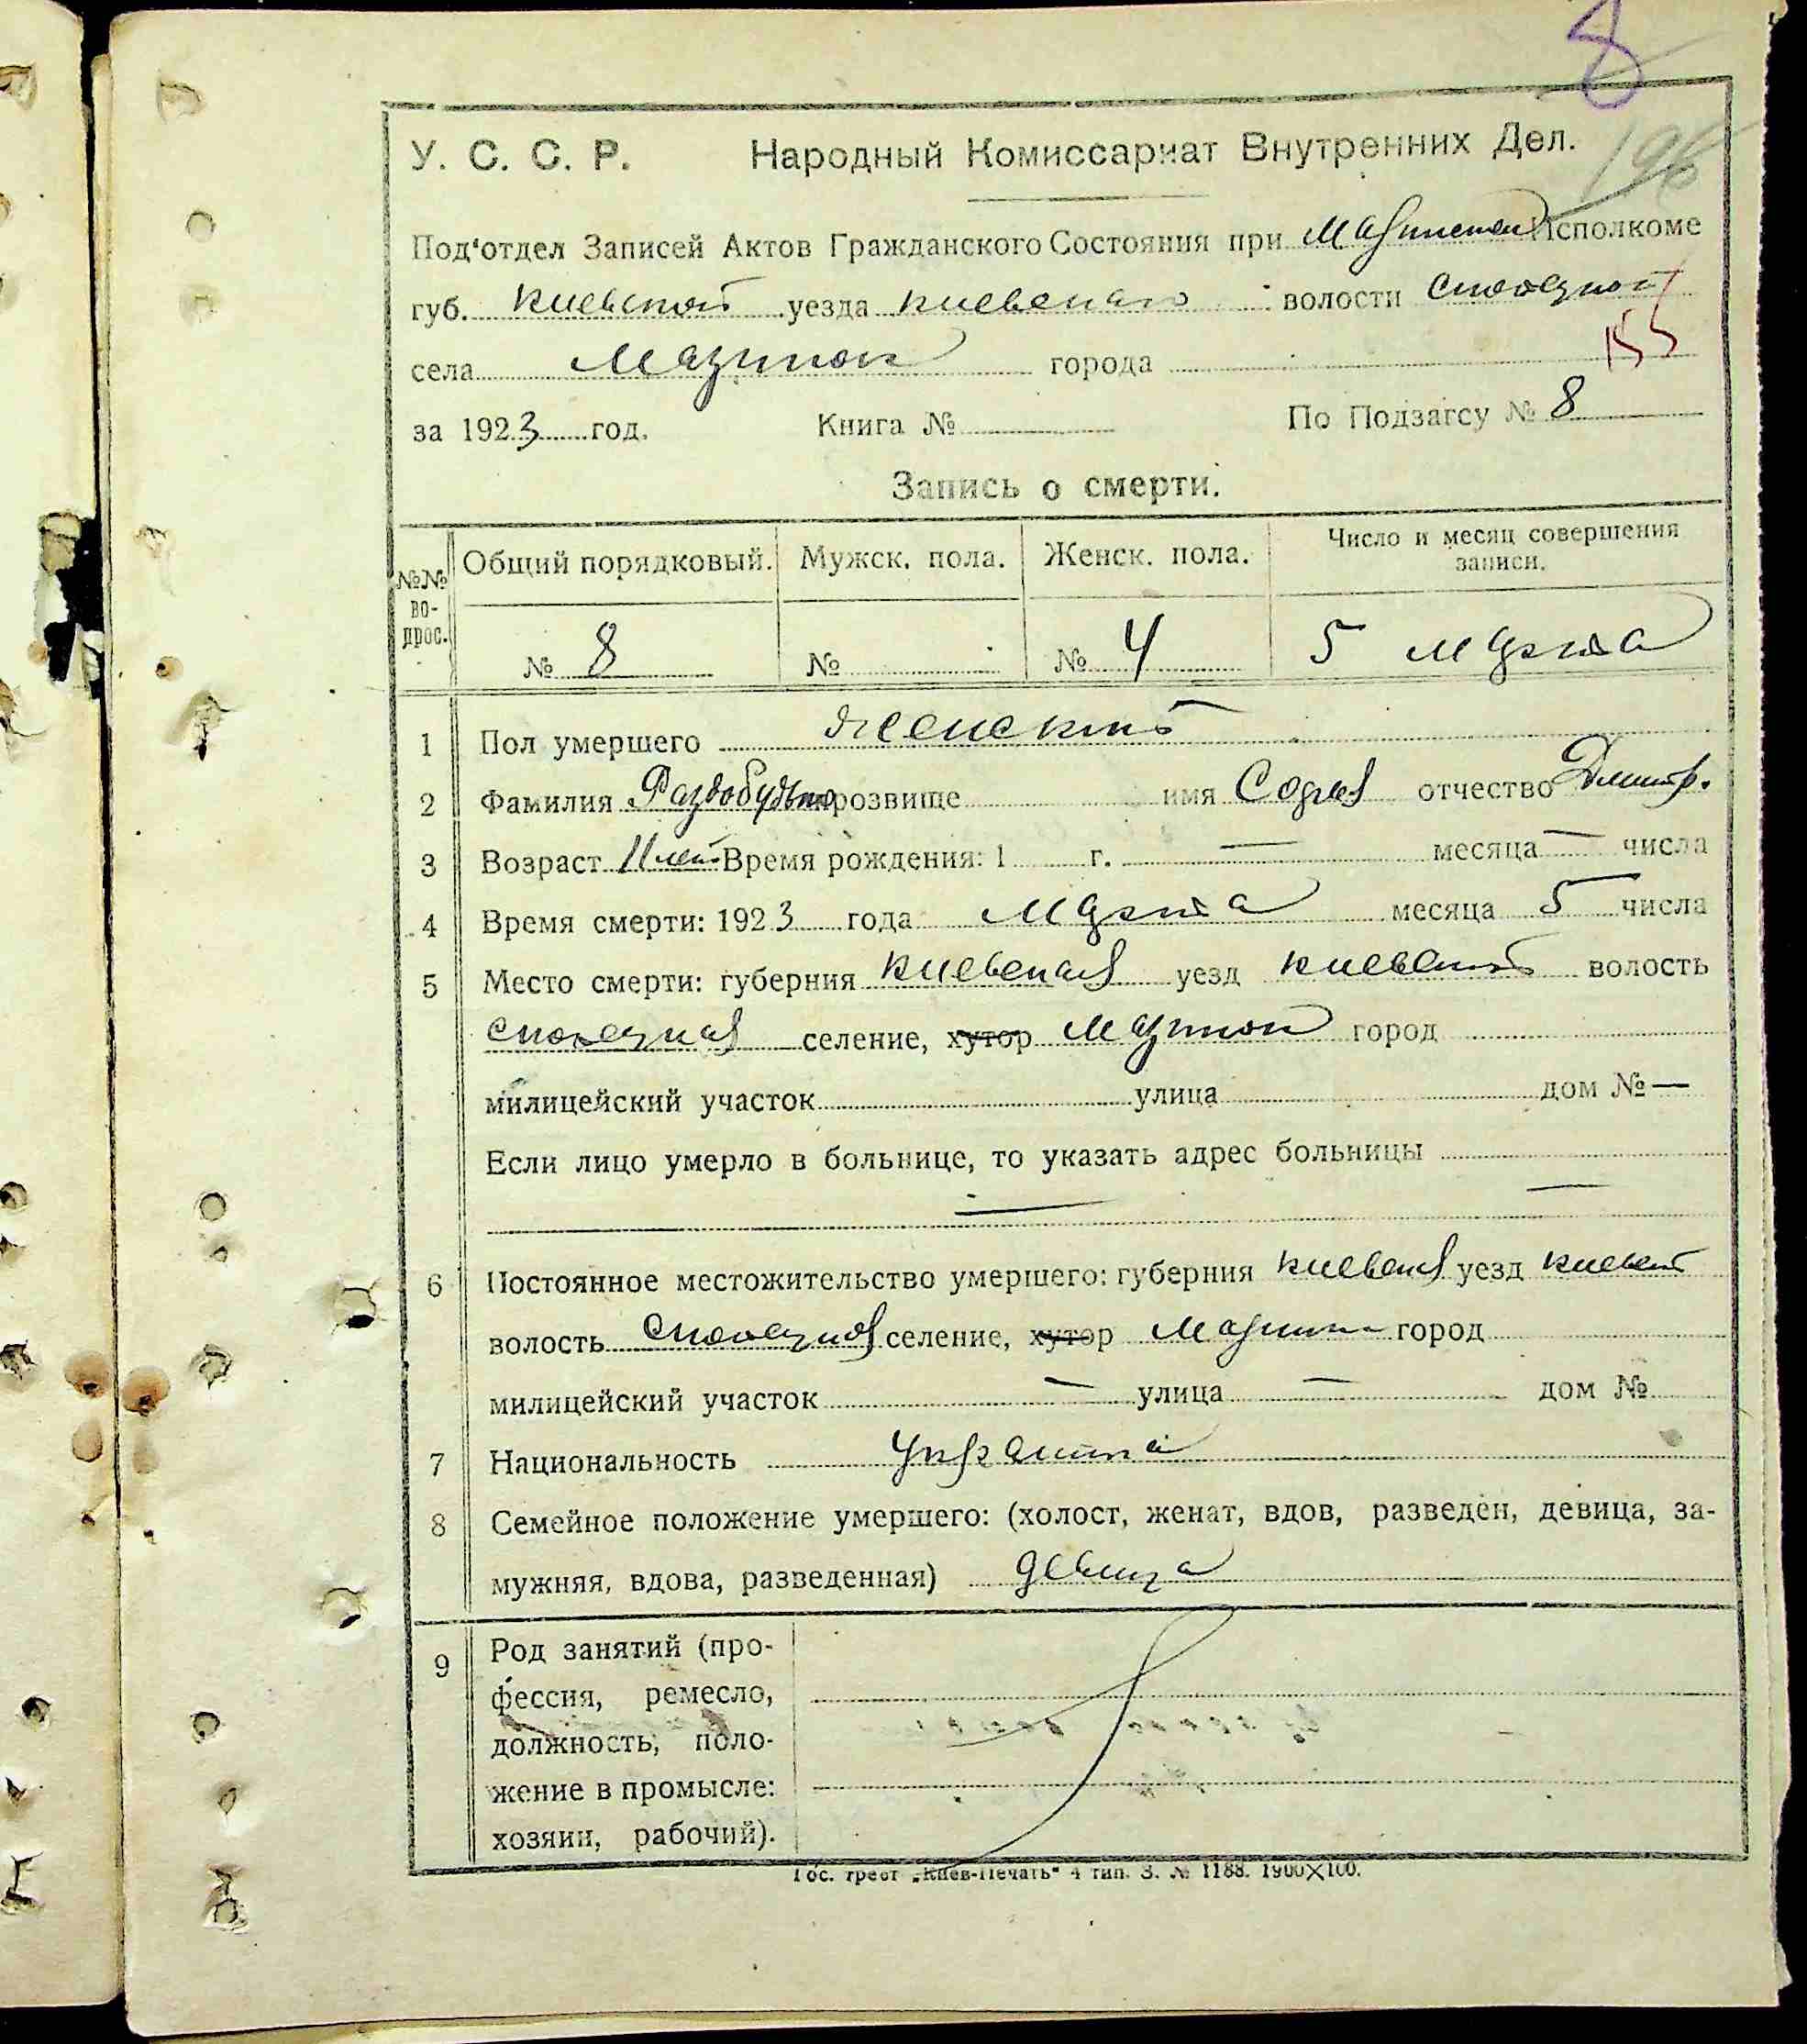 8
196
У. С. С. Р. Народный Комиссариат Внутренних Дел.
Под'отдел Записей Актов Гражданского Состояния при Исполкоме
губ. Киевской уезда Киевского волости
155
села города
за 1923 год. Книга № По Подзагсу № 8
Запись о смерти.
№№ во-прос. Общий порядковый. Мужск. пола. Женск. пола. Число и месяц совершения записи.
№ 8 № № 4 5 марта
1 Пол умершего женский
2 Фамилия Раздобудько прозвище имя София отчество Дмитр.
3 Возраст 11 лет Время рождения: 1 г. — месяца — числа
4 Время смерти: 1923 года марта месяца 5 числа
5 Место смерти: губерния Киевская уезд Киевский волость
селение, хутор город
милицейский участок улица дом № —
Если лицо умерло в больнице, то указать адрес больницы
— —
6 Постоянное местожительство умершего: губерния Киевская уезд Киевский
волость селение, хутор город
милицейский участок — улица — дом №
7 Национальность
8 Семейное положение умершего: (холост, женат, вдов, разведен, девица, за-
мужняя, вдова, разведенная) девица
9 Род занятий (про-
фессия, ремесло,
должность, поло-
жение в промысле:
хозяин, рабочий).
Гос. трест „Киев-Печать" 4 тип. З. № 1188. 1900×100.